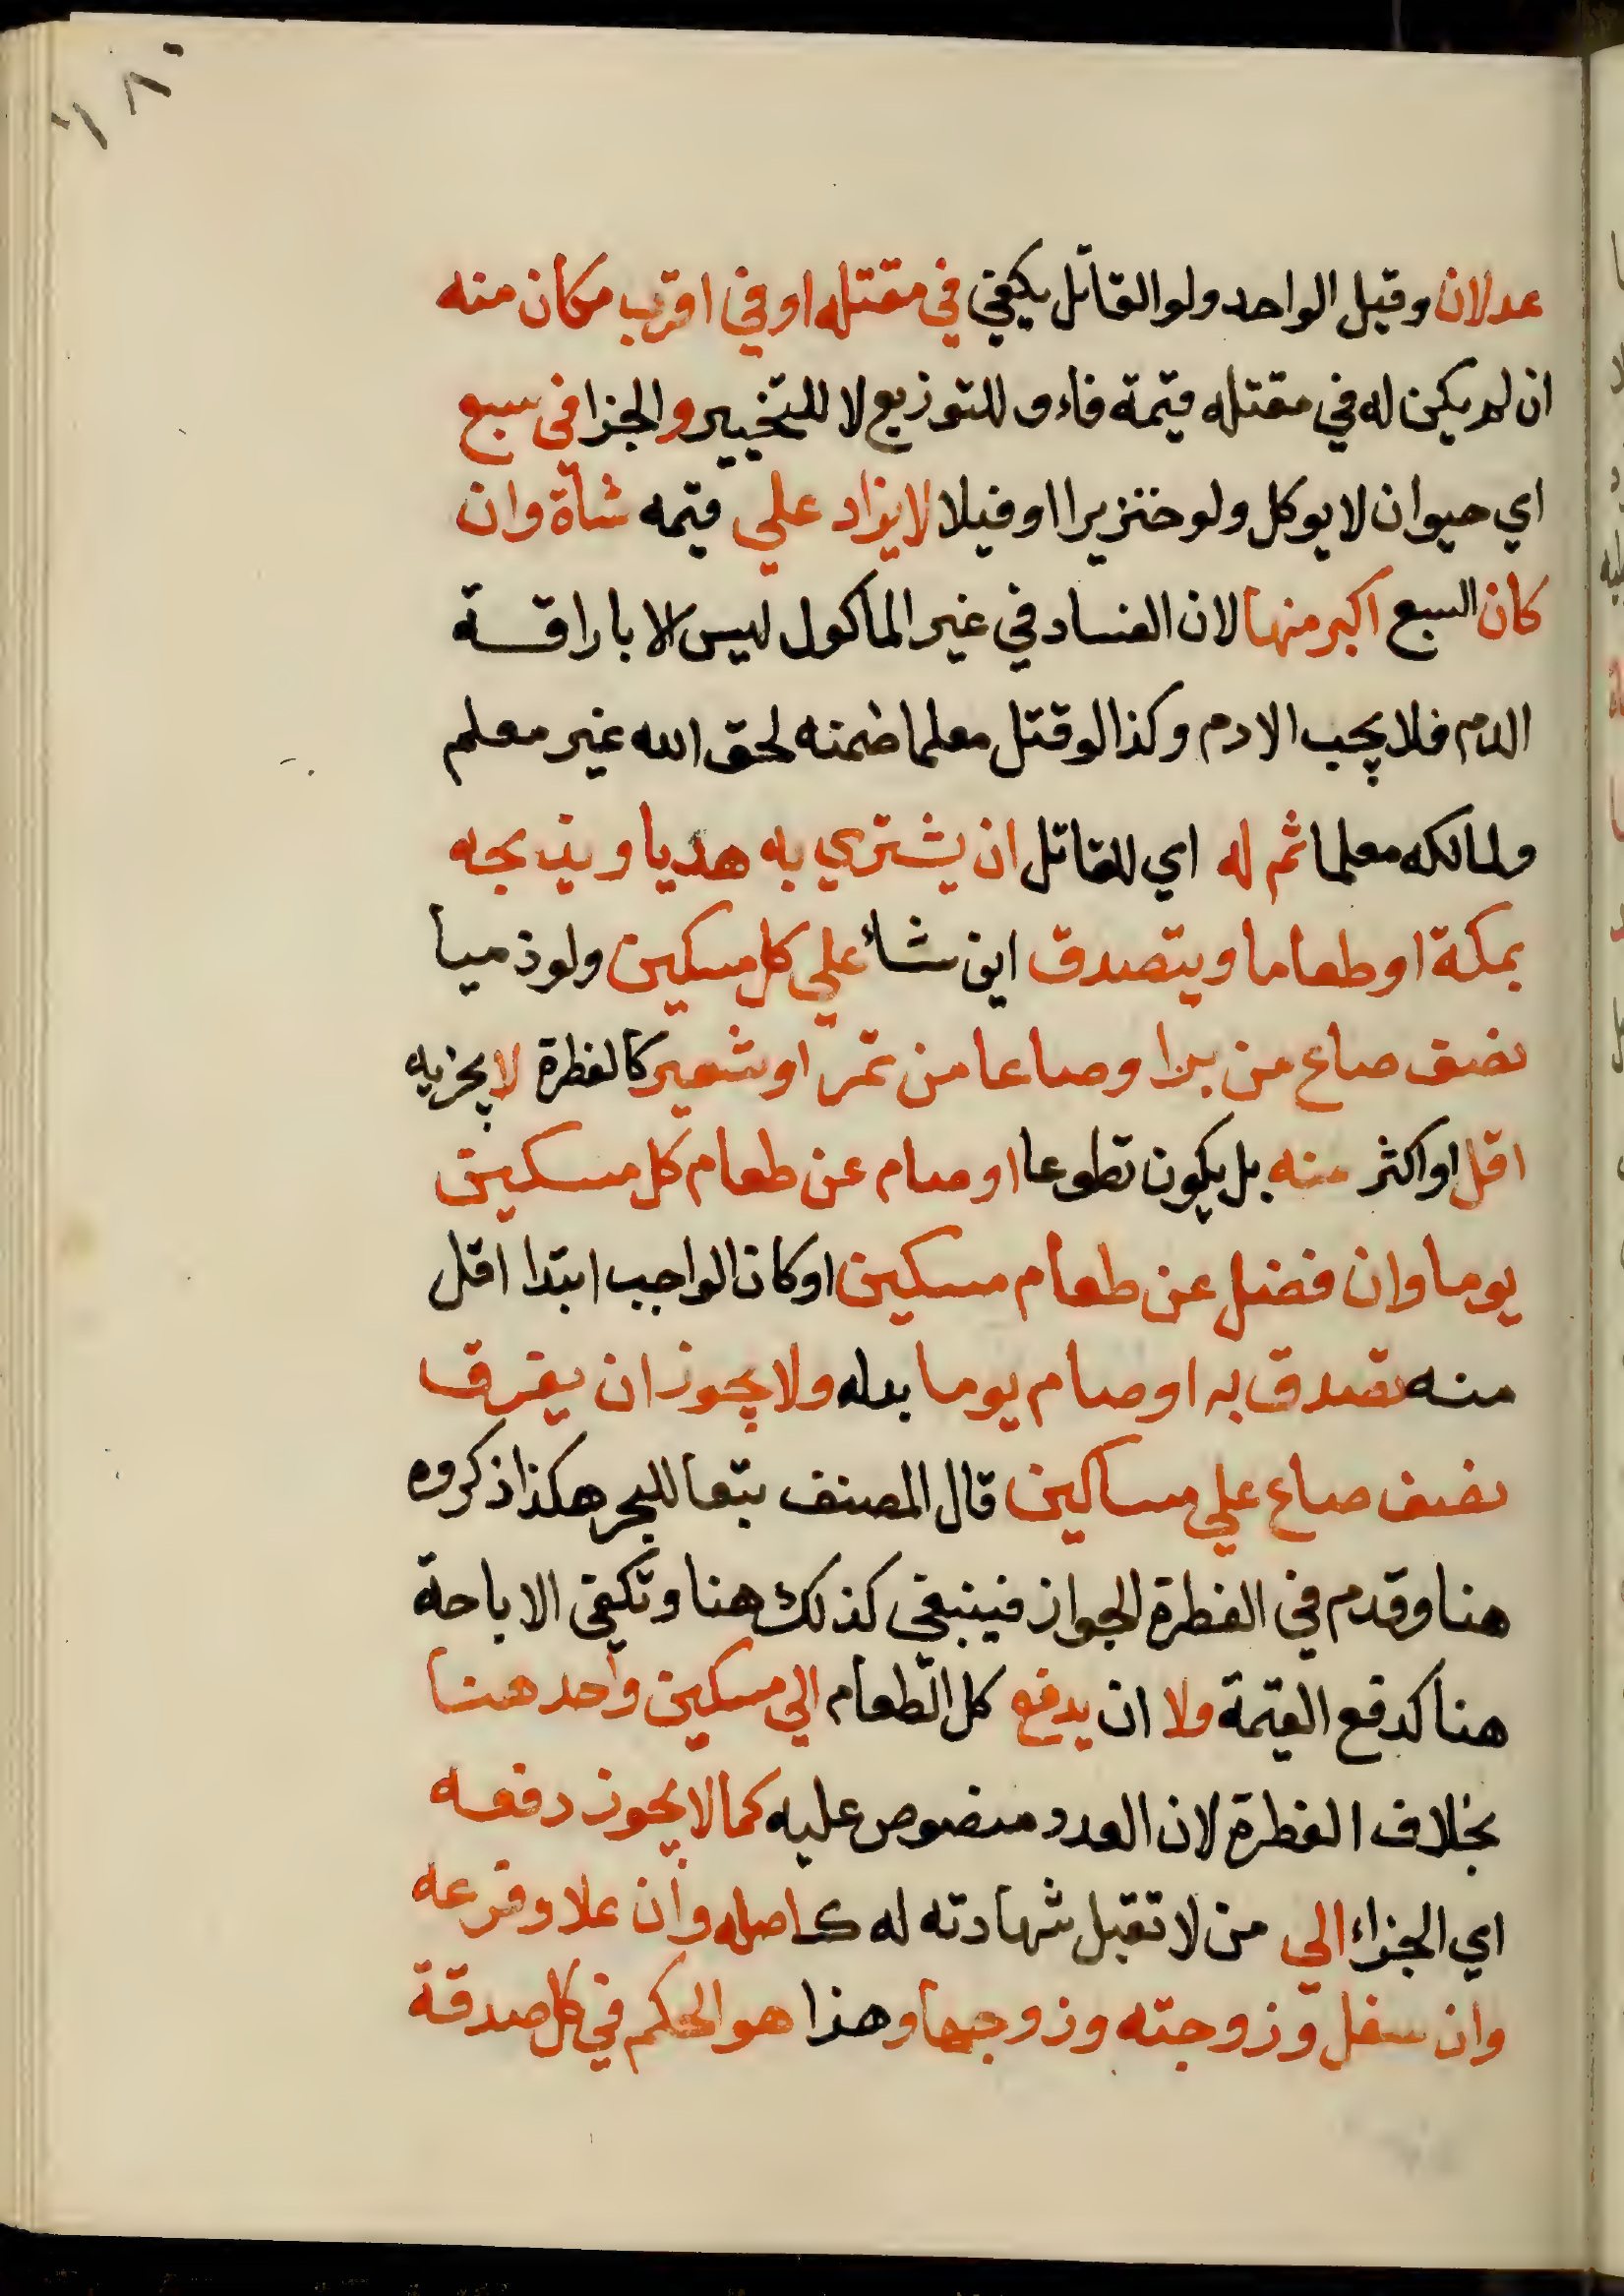 ١٨٠
عدلان وقيل الواحد ولو القاتل يكفي في مقتله او في اقرب مكان منه
ان لم يكن له في مقتله قيمة فاء و للتوزيع لا للتخيير و الجزا في سبع
اي حيوان لا يوكل ولو خنزيرا او فيلا لا يزاد علي قيمه شأة وان
كان السبع اكبر منها لان الفساد في غير الماكول ليس الا باراقة
الدم فلا يجب الا دم وكذا لو قتل معلما ضمنه لحق الله غير معلم
ولمالكه معلما ثم له اي للقاتل ان يشتري به هديا ويذبحه
بمكة او طعاما ويتصدق اين شاء علي كل مسكين ولو ذميا
نصف صاع من بر او صاعا من تمر او شعير كالفطرة لا يجزيه
اقل او اكثر منه بل يكون تطوعا او صام عن طعام كل مسكين
يوما وان فضل عن طعام مسكين او كان الواجب ابتدا اقل
منه تصدق به او صام يوما بدله ولا يجوز ان يفرق
نصف صاع علي مساكين قال المصنف تبعا للبحر هكذا ذكروه
هنا وقدم في الفطرة الجواز فينبغي كذلك هنا وتكفي الاباحة
هنا كدفع القيمة ولا ان يدفع كل الطعام الي مسكين واحد هنا
بخلاف الفطرة لان العدد منصوص عليه كما لا يجوز دفعه
اي الجزاء الي من لا تقبل شهادته له كاصله وان علا وفرعه
وان سفل وزوجته وزوجها وهذا هو الحكم في كل صدقة